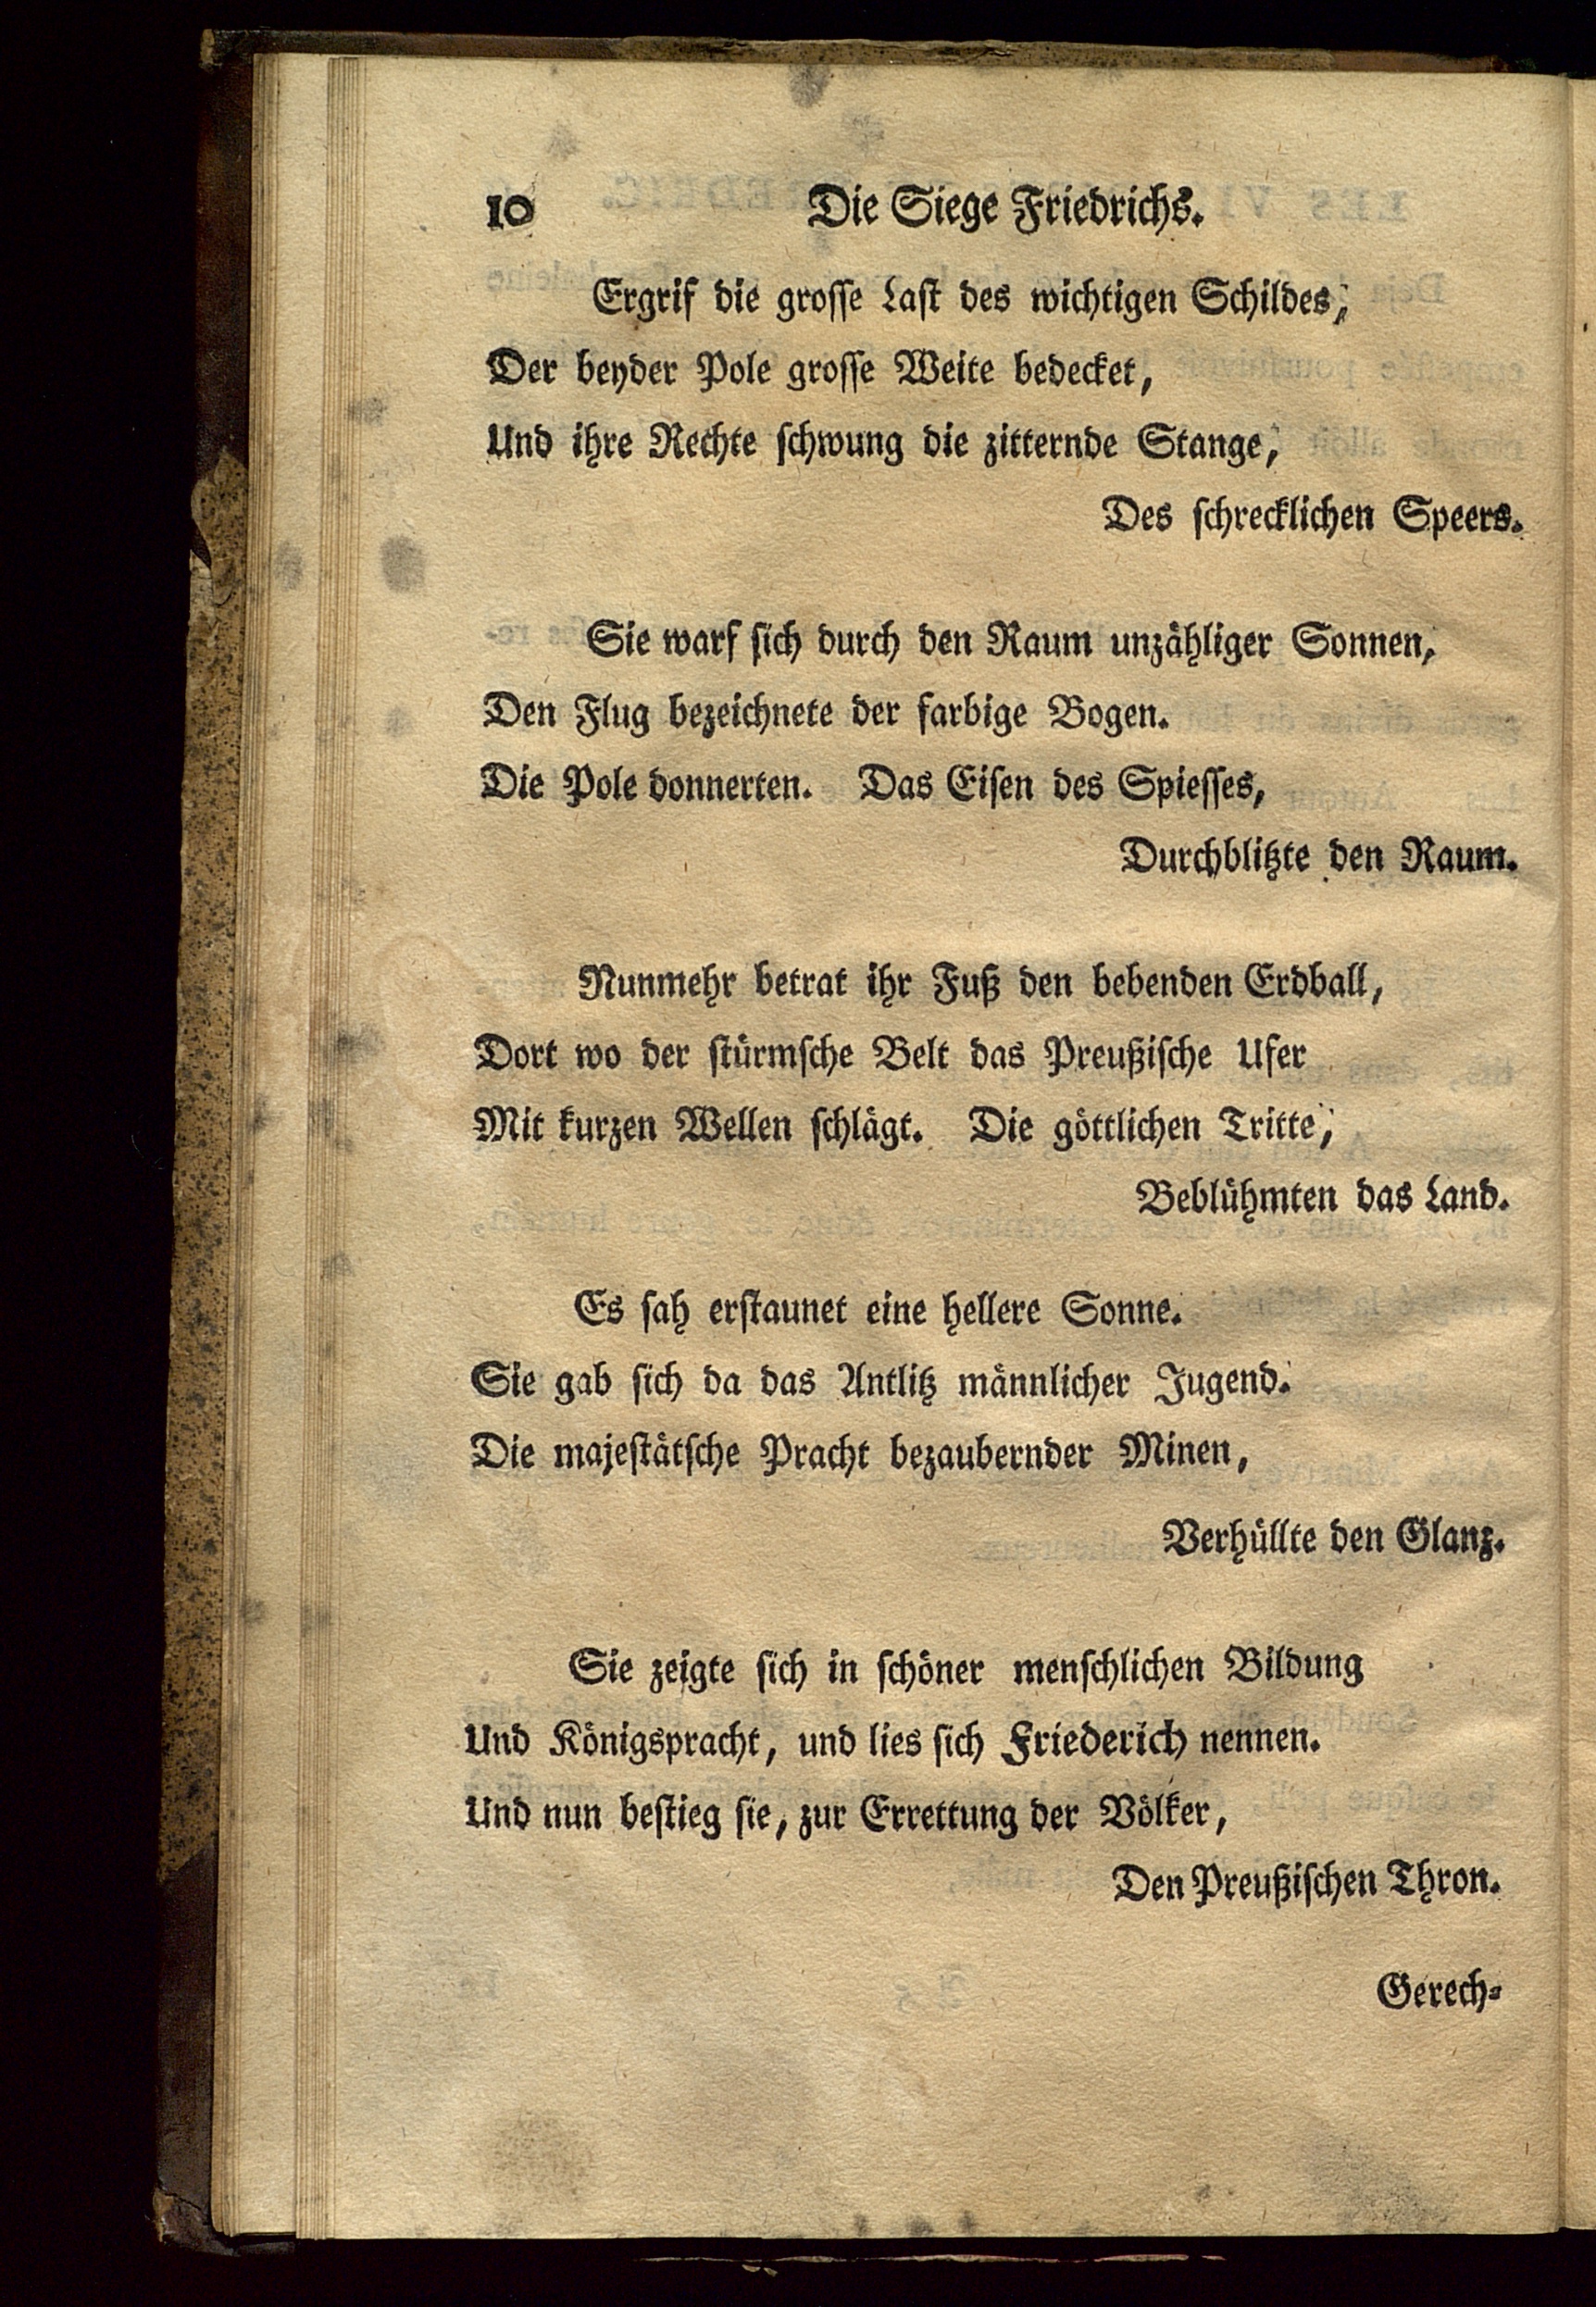 10 Die Siege Friedrichs.
Ergrif die grosse Last des wichtigen Schildes,
Der beyder Pole grosse Weite bedecket,
Und ihre Rechte schwung die zitternde Stange,
Des schrecklichen Speers.
Sie warf sich durch den Raum unzähliger Sonnen,
Den Flug bezeichnete der farbige Bogen.
Die Pole donnerten. Das Eisen des Spiesses,
Durchblitzte den Raum.
Nunmehr betrat ihr Fuß den bebenden Erdball,
Dort wo der stürmsche Belt das Preußische Ufer
Mit kurzen Wellen schlägt. Die göttlichen Tritte,
Beblühmten das Land.
Es sah erstaunet eine hellere Sonne.
Sie gab sich da das Antlitz männlicher Jugend.
Die majestätsche Pracht bezaubernder Minen,
Verhüllte den Glanz.
Sie zeigte sich in schöner menschlichen Bildung
Und Königspracht, und lies sich Friederich nennen.
Und nun bestieg sie, zur Errettung der Völker,
Den Preußischen Thron.
Gerech-